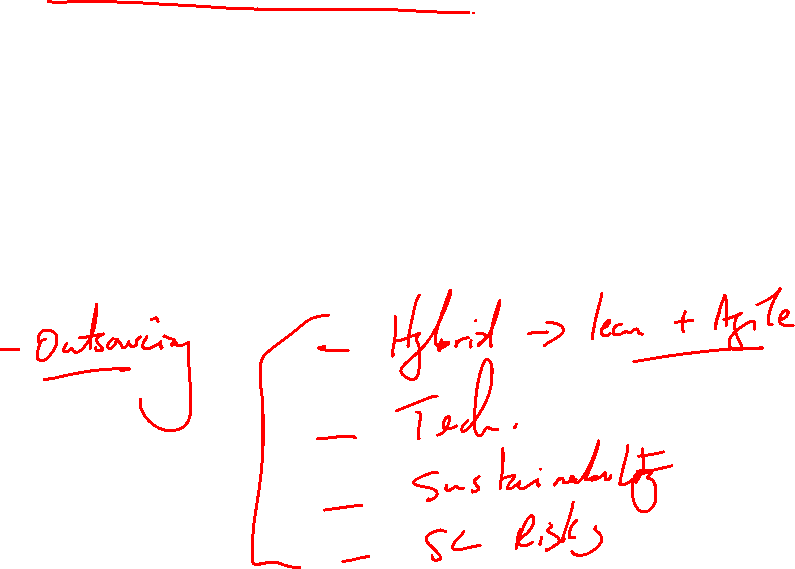 - Outsourcing
- Hybrid → lean + Agile
- Tech.
- Sustainability
- SC Risks